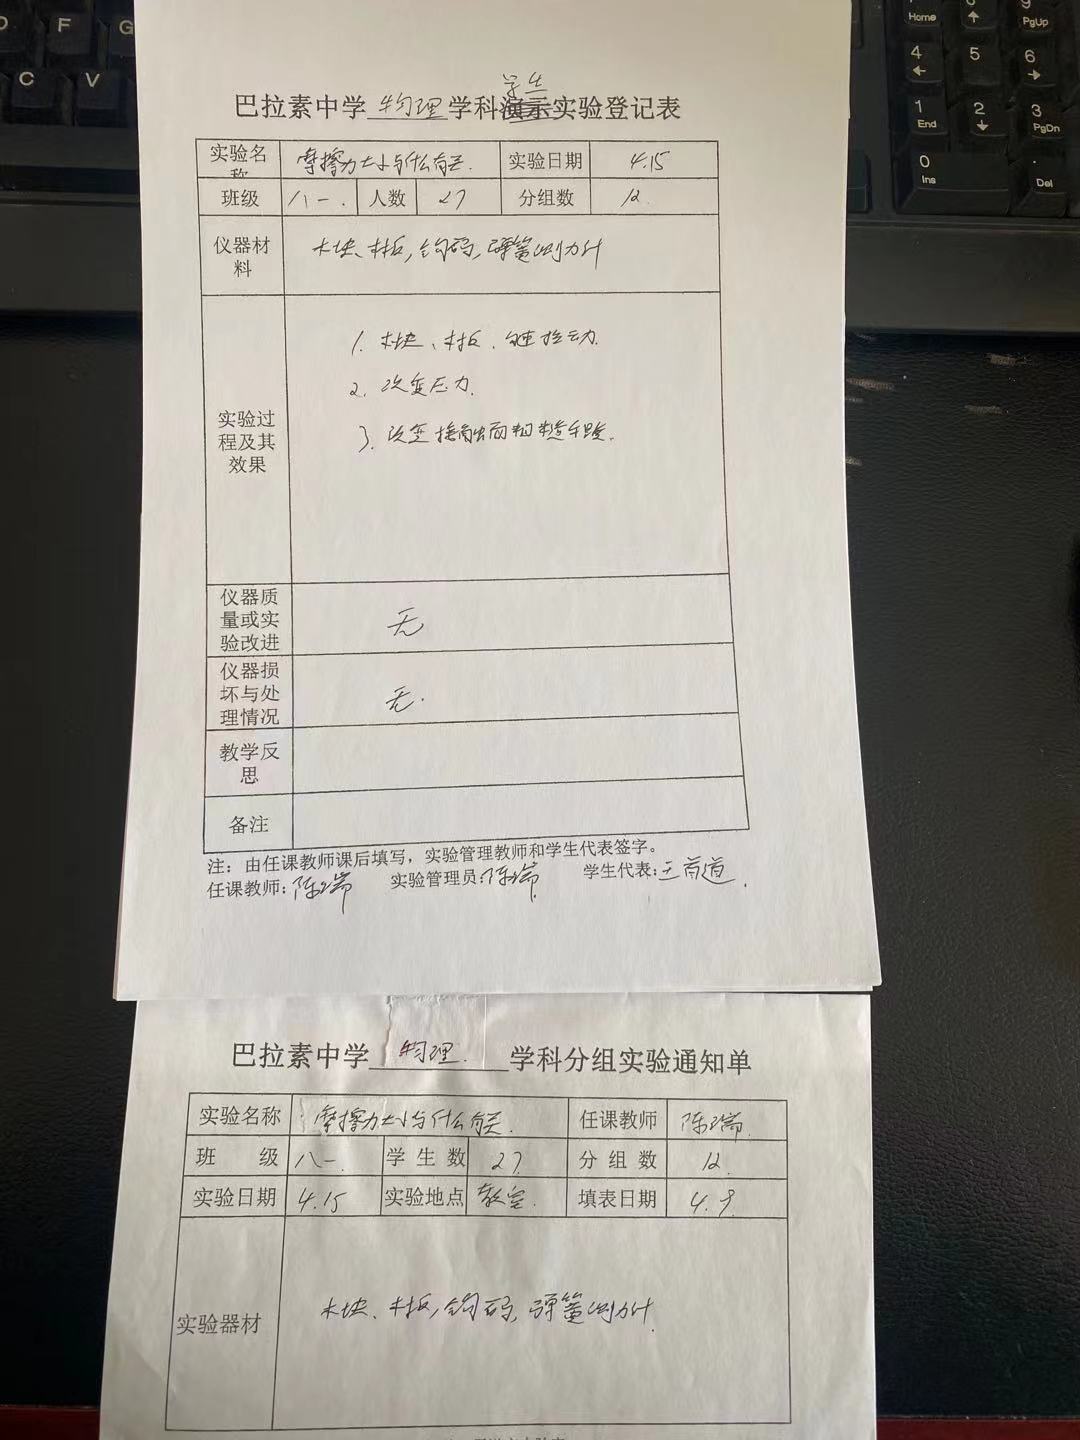 巴拉素中学物理学科演示实验登记表
学生
实验名称 摩擦力大小与什么有关. 实验日期 4.15
班级 八一. 人数 27 分组数 12.
仪器材料 木块、木板,钩码,弹簧测力计
实验过程及其效果
1. 木块、木板.匀速拉动.
2. 改变压力.
3. 改变接触面粗糙程度.
仪器质量或实验改进 无
仪器损坏与处理情况 无.
教学反思
备注
注:由任课教师课后填写,实验管理教师和学生代表签字。
任课教师:陈瑞 实验管理员:陈瑞 学生代表:王首道.
巴拉素中学物理.学科分组实验通知单
实验名称 摩擦力大小与什么有关. 任课教师 陈瑞.
班级 八一. 学生数 27 分组数 12.
实验日期 4.15 实验地点 教室. 填表日期 4.9.
实验器材 木块、木板,钩码,弹簧测力计.
D F G
C V
Home PgUp
4 5 6
1 End 2 3 PgDn
0 Ins . Del